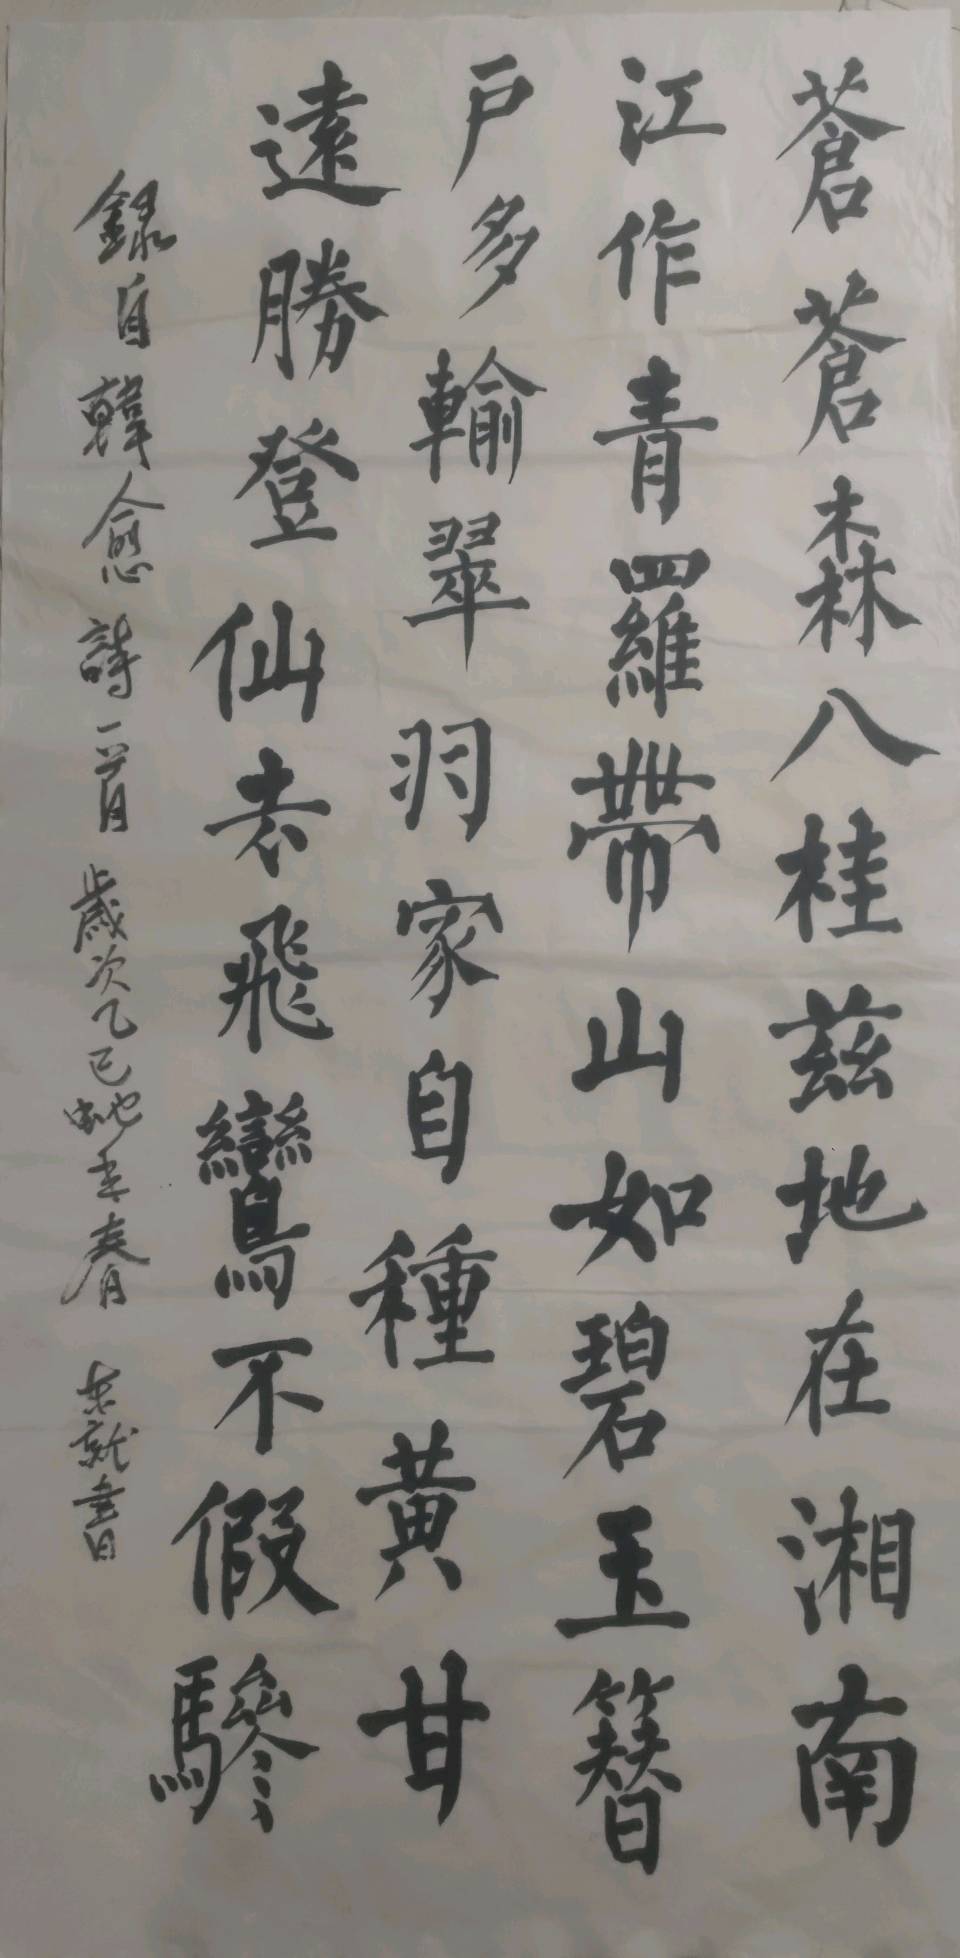 蒼蒼森八桂茲地在湘南
江作青羅帶山如碧玉簪
戶多輸翠羽家自種黃甘
遠勝登仙去飛鸞不假驂
錄自韓愈詩一首歲次乙巳蛇年春 就書